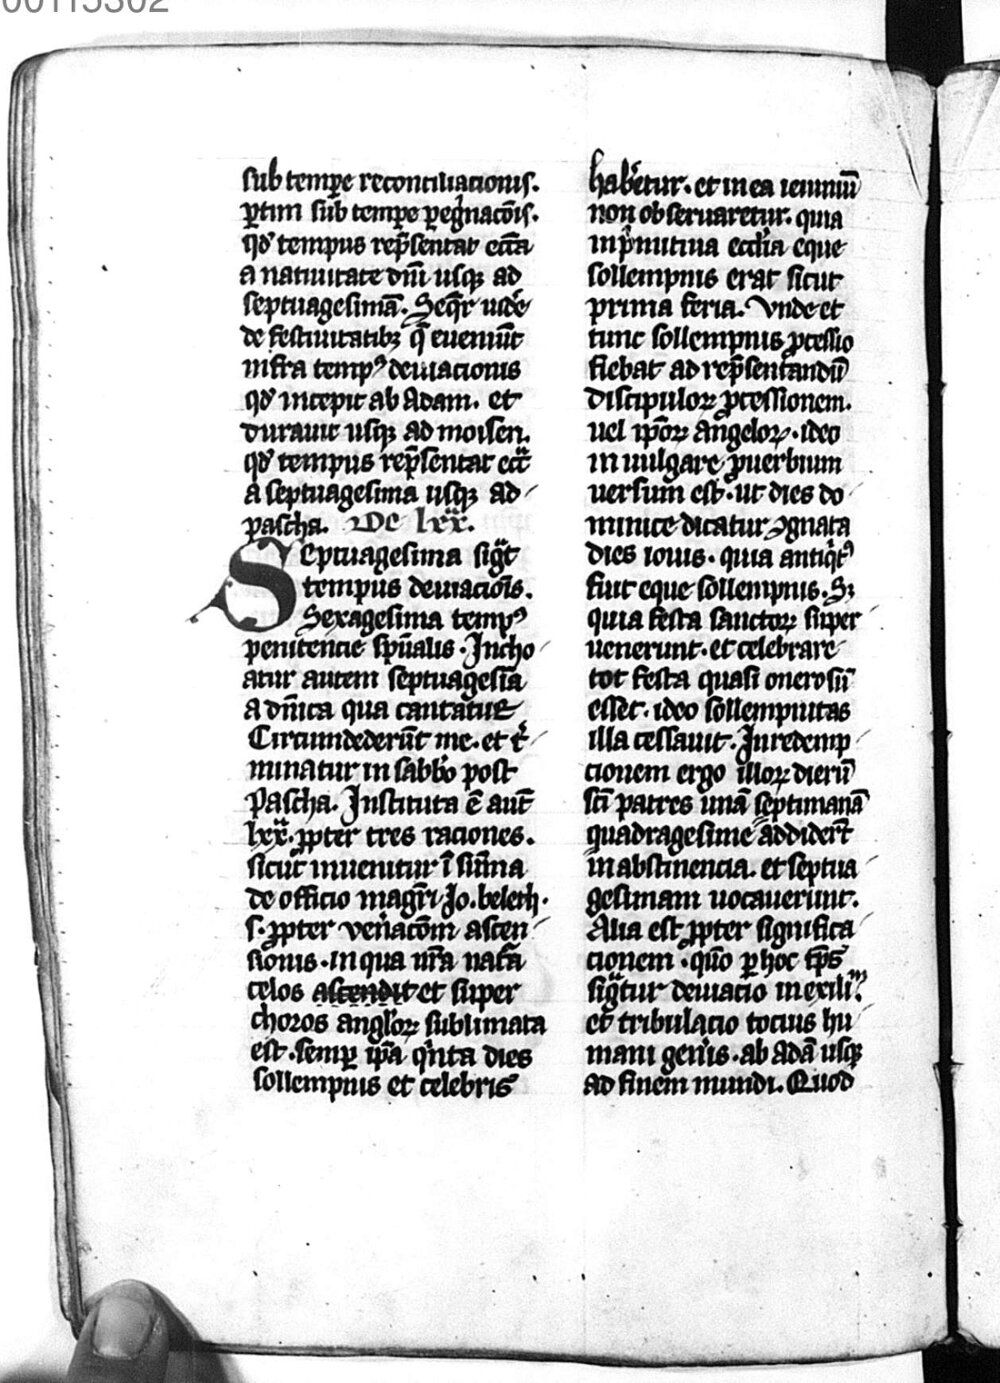 00115302
sub tempe reconciliacionis.
ꝑtim sub tempe ꝑegͥnacōis.
qd̛ tempus rep̄sentat eccͣa
a natiuitate dn̄i usqꝫ ad
septuagesimā. Seqͥr uid̛e
de festiuitatibꝫ q̄ eueniūt
infra tempꝰ deuiacionis
qd̛ incepit ab Adam. et
durauit usqꝫ ad moisen.
qd̛ tempus rep̄sentat eccͣ
a septuagesima usqꝫ ad
pascha. De lxx.
Septuagesima sigͣt
tempus deuiacōis.
Sexagesima tempꝰ
penitencie spūalis. Incho
atur autem septuagesīa
a dn̄ica qua cantatur
Circumdederūt me. et t̛
minatur in sabbo post
Pascha. Instituta ē aut̄
lxx. ꝓpter tres raciones.
sicut inuenitur ī sūma
de officio magr̄i Jo. beleth.
s. ꝓpter ven̄acōm ascen
sionis. in qua nr̄a nat̄a
celos ascendit et super
choros angl̛oꝝ sublimata
est. semꝑ ip̄a qͥnta dies
sollempnis et celebris
hab̛etur. et in ea ieiuniū
non obseruaretur. quia
in pͥmitiua ecclīa eque
sollempnis erat sicut
prima feria. Vnde et
tunc sollempnis ꝓcessio
fiebat ad rep̄sentandū
discipuloꝝ ꝓcessionem.
uel ip̄oꝝ angeloꝝ. ideo
in uulgare ꝓuerbium
uersum est. ut dies do
minice dicatur ꝯgnata
dies iouis. quia antiqͥtꝰ
fuit eque sollempnis. Sꝫ
quia festa sanctoꝝ super
uenerunt. et celebrare
tot festa quasi onerosū
esset. ideo sollempnitas
illa cessauit. In redemp
cionem ergo illoꝝ dierū
sc̄i patres unā septimanā
quadragesime addidert̄
in abstinencia. et septua
gesimam uocauerunt.
Alia est ꝓpter significa
cionem. quō ꝑ hoc tp̄s
sigͣtur deuiacio in exiliū.
et tribulacio tocius hu
mani gen̛is. ab adā usqꝫ
ad finem mundi. Quod